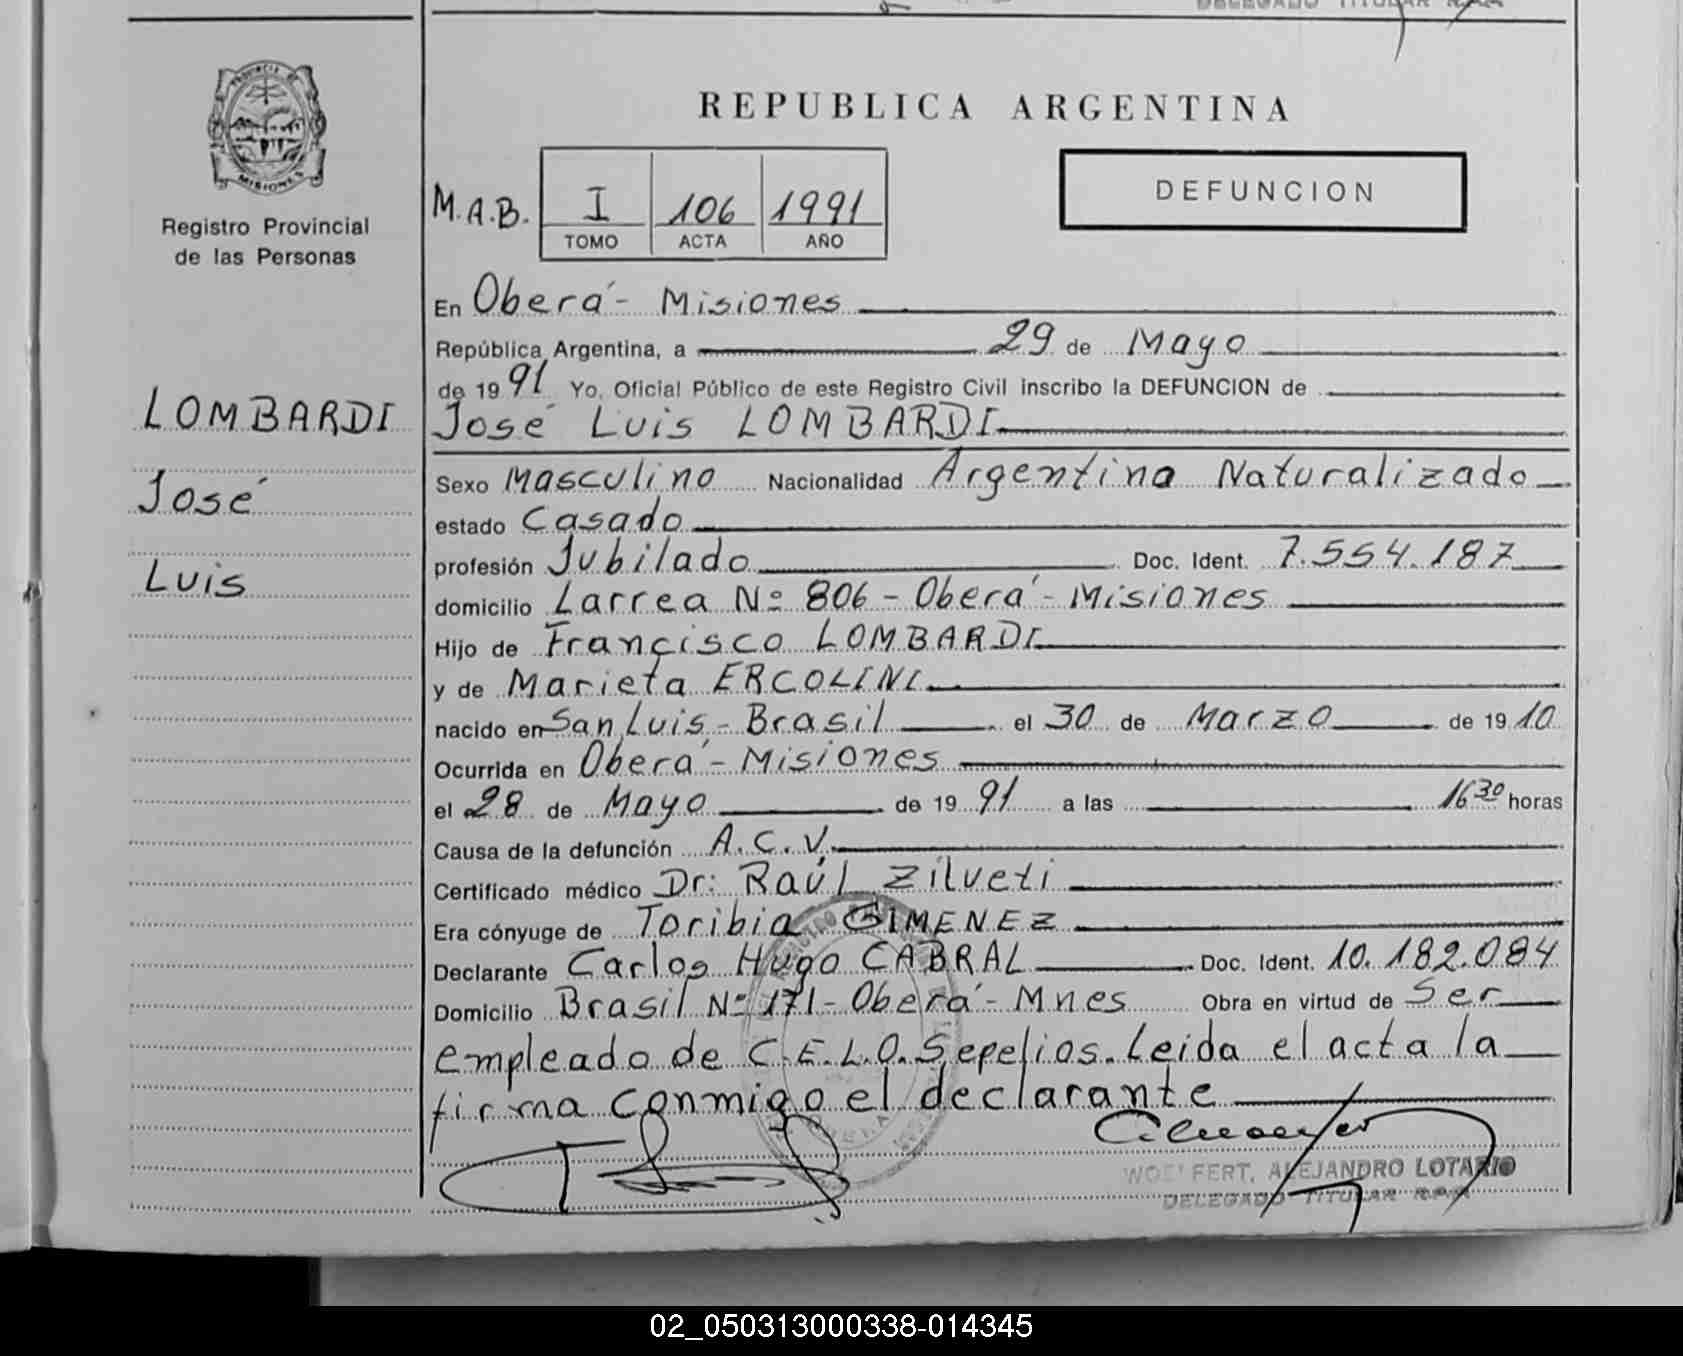 DELEGADO TITULAR R.P.P.
PROVINCIA DE
MISIONES
Registro Provincial
de las Personas
LOMBARDI
José
Luis
REPUBLICA ARGENTINA
M.A.B. I 106 1991
TOMO ACTA AÑO
DEFUNCION
En Oberá - Misiones
República Argentina, a 29 de Mayo
de 19 91 Yo, Oficial Público de este Registro Civil inscribo la DEFUNCION de
José Luis LOMBARDI
Sexo Masculino Nacionalidad Argentina Naturalizado
estado Casado
profesión Jubilado Doc. Ident. 7.554.187
domicilio Larrea Nº 806 - Oberá - Misiones
Hijo de Francisco LOMBARDI
y de Marieta ERCOLINI
nacido en San Luis - Brasil el 30 de Marzo de 19 10
Ocurrida en Oberá - Misiones
el 28 de Mayo de 19 91 a las 16 30 horas
Causa de la defunción A.C.V.
Certificado médico Dr: Raúl Zilveti
Era cónyuge de Toribia GIMENEZ
Declarante Carlos Hugo CABRAL Doc. Ident. 10.182.084
Domicilio Brasil Nº 171 - Oberá - Mnes Obra en virtud de Ser
empleado de C.E.L.O. Sepelios. Leida el acta la
firma conmigo el declarante
ALEJANDRO LOTARIO
DELEGADO TITULAR R.P.P.
02_050313000338-014345